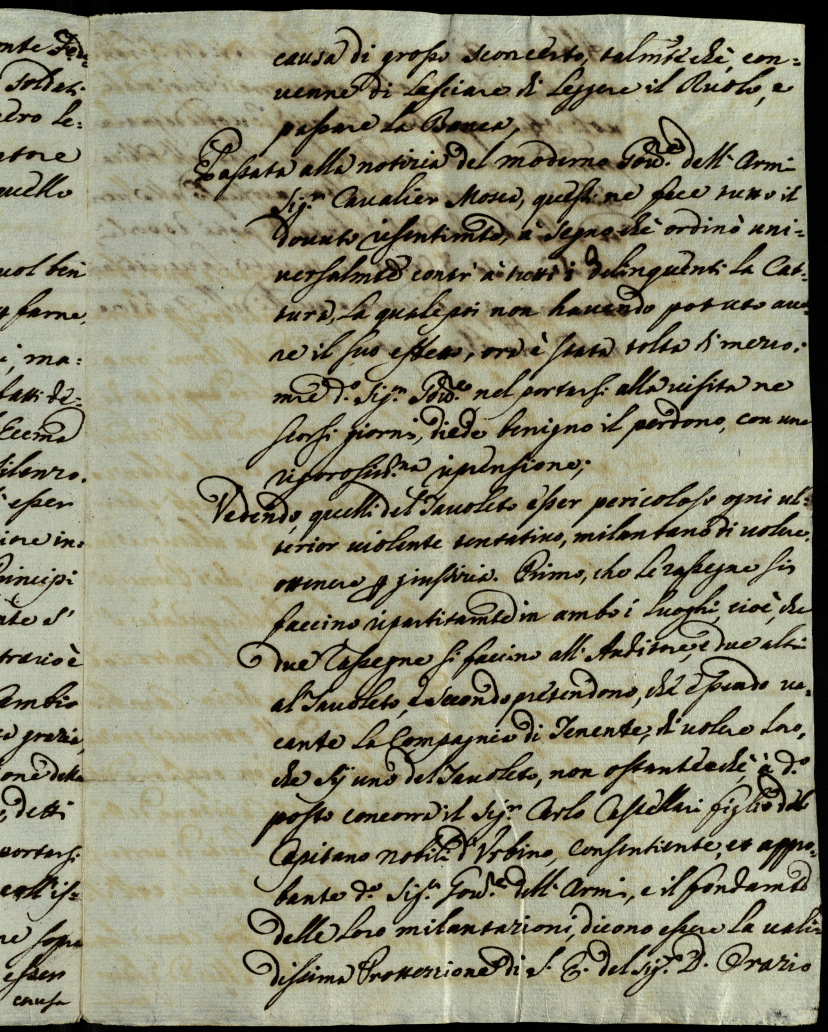 mte
soldati
ero le:
atore
quello
uol ben
farne,
i, ma:
fatti de:
Eccma
silenzo.
esser
ione in:
Principi
ate s'
trario è
ambio
grazia,
one della
detti
portarsi
all'is:
re sopra
esser
causa
causa di grosso sconcerto, talmte chè, con:
uenne di lasciare di leggere il Ruolo, e
passare la Banca,
Passata alla notizia del moderno Gou.re dell'Armi
Sig.r Caualier Mosca, questi ne fece tutto il
douuto risentimto, à segno chè ordinò uni:
uersalmte contr'à tutti i delinquenti la Cat:
tura, la quale poi non hauendo potuto aue:
re il suo effetto, ora è stata tolta di mezzo:
mre d.o Sig.r Gou.re nel portarsi alla uisita ne
scorsi giorni, diede benigno il perdono, con una
rigorosiss.ma riprensione;
Vedendo quelli del Tauoleto esser pericoloso ogni ul:
terior uiolente tentatiuo, milantano di uolere
ottenere p giustizia. Primo, che le rassegne si
faccino ripartitamte in ambo i luoghi, cioè, che
due Rassegne si faccino all'Auditore, e due altre
al Tauoleto, e secondo pretendono, chè essendo ua:
cante la Compagnia di Tenente, di uolere loro,
che sij uno del Tauoleto, non ostante chè, à d.o
posto concorra il Sig.r Carlo Castellari figlio del
Capitano nobili d'Vrbino, consentiente, et appro:
bante d.o Sig.r Gou.re dell'Armi, e il fondamto
delle loro milantazioni, dicono essere la uali:
dissima Protezzione di S. E. del Sig.r D. Orazio